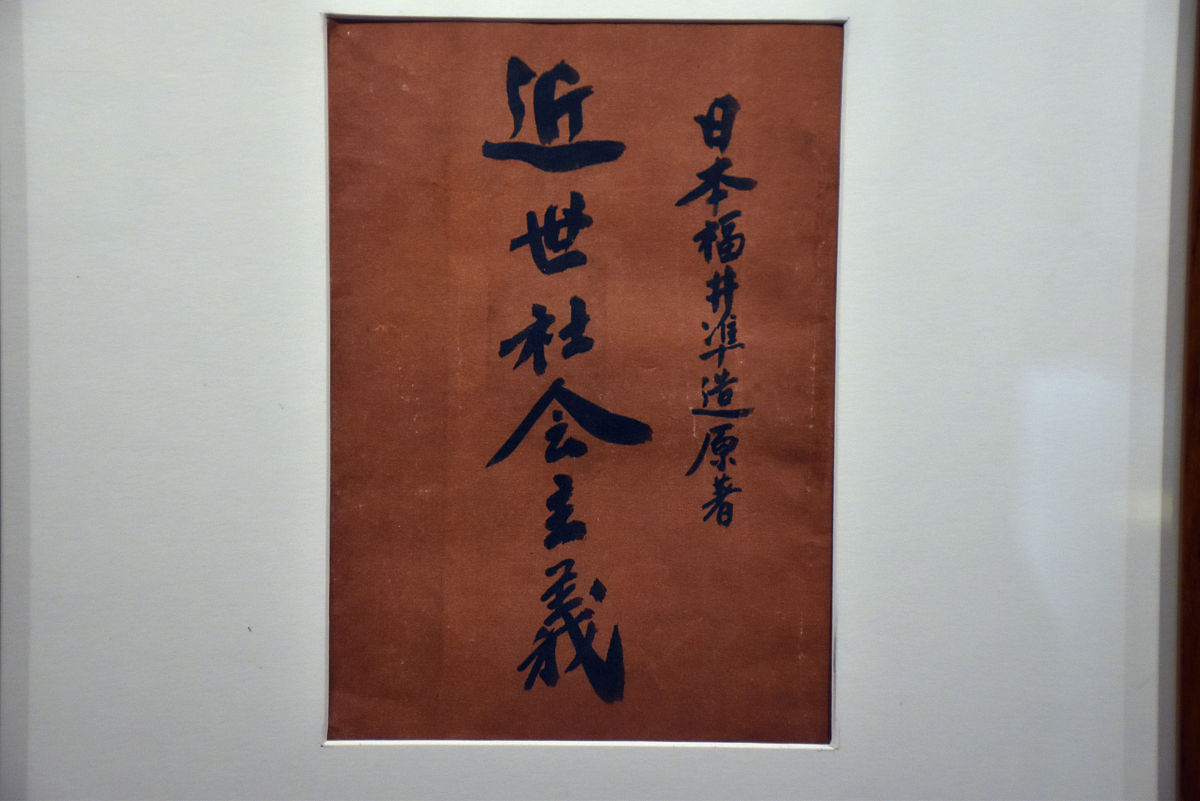 日本福井準造原著
近世社会主義